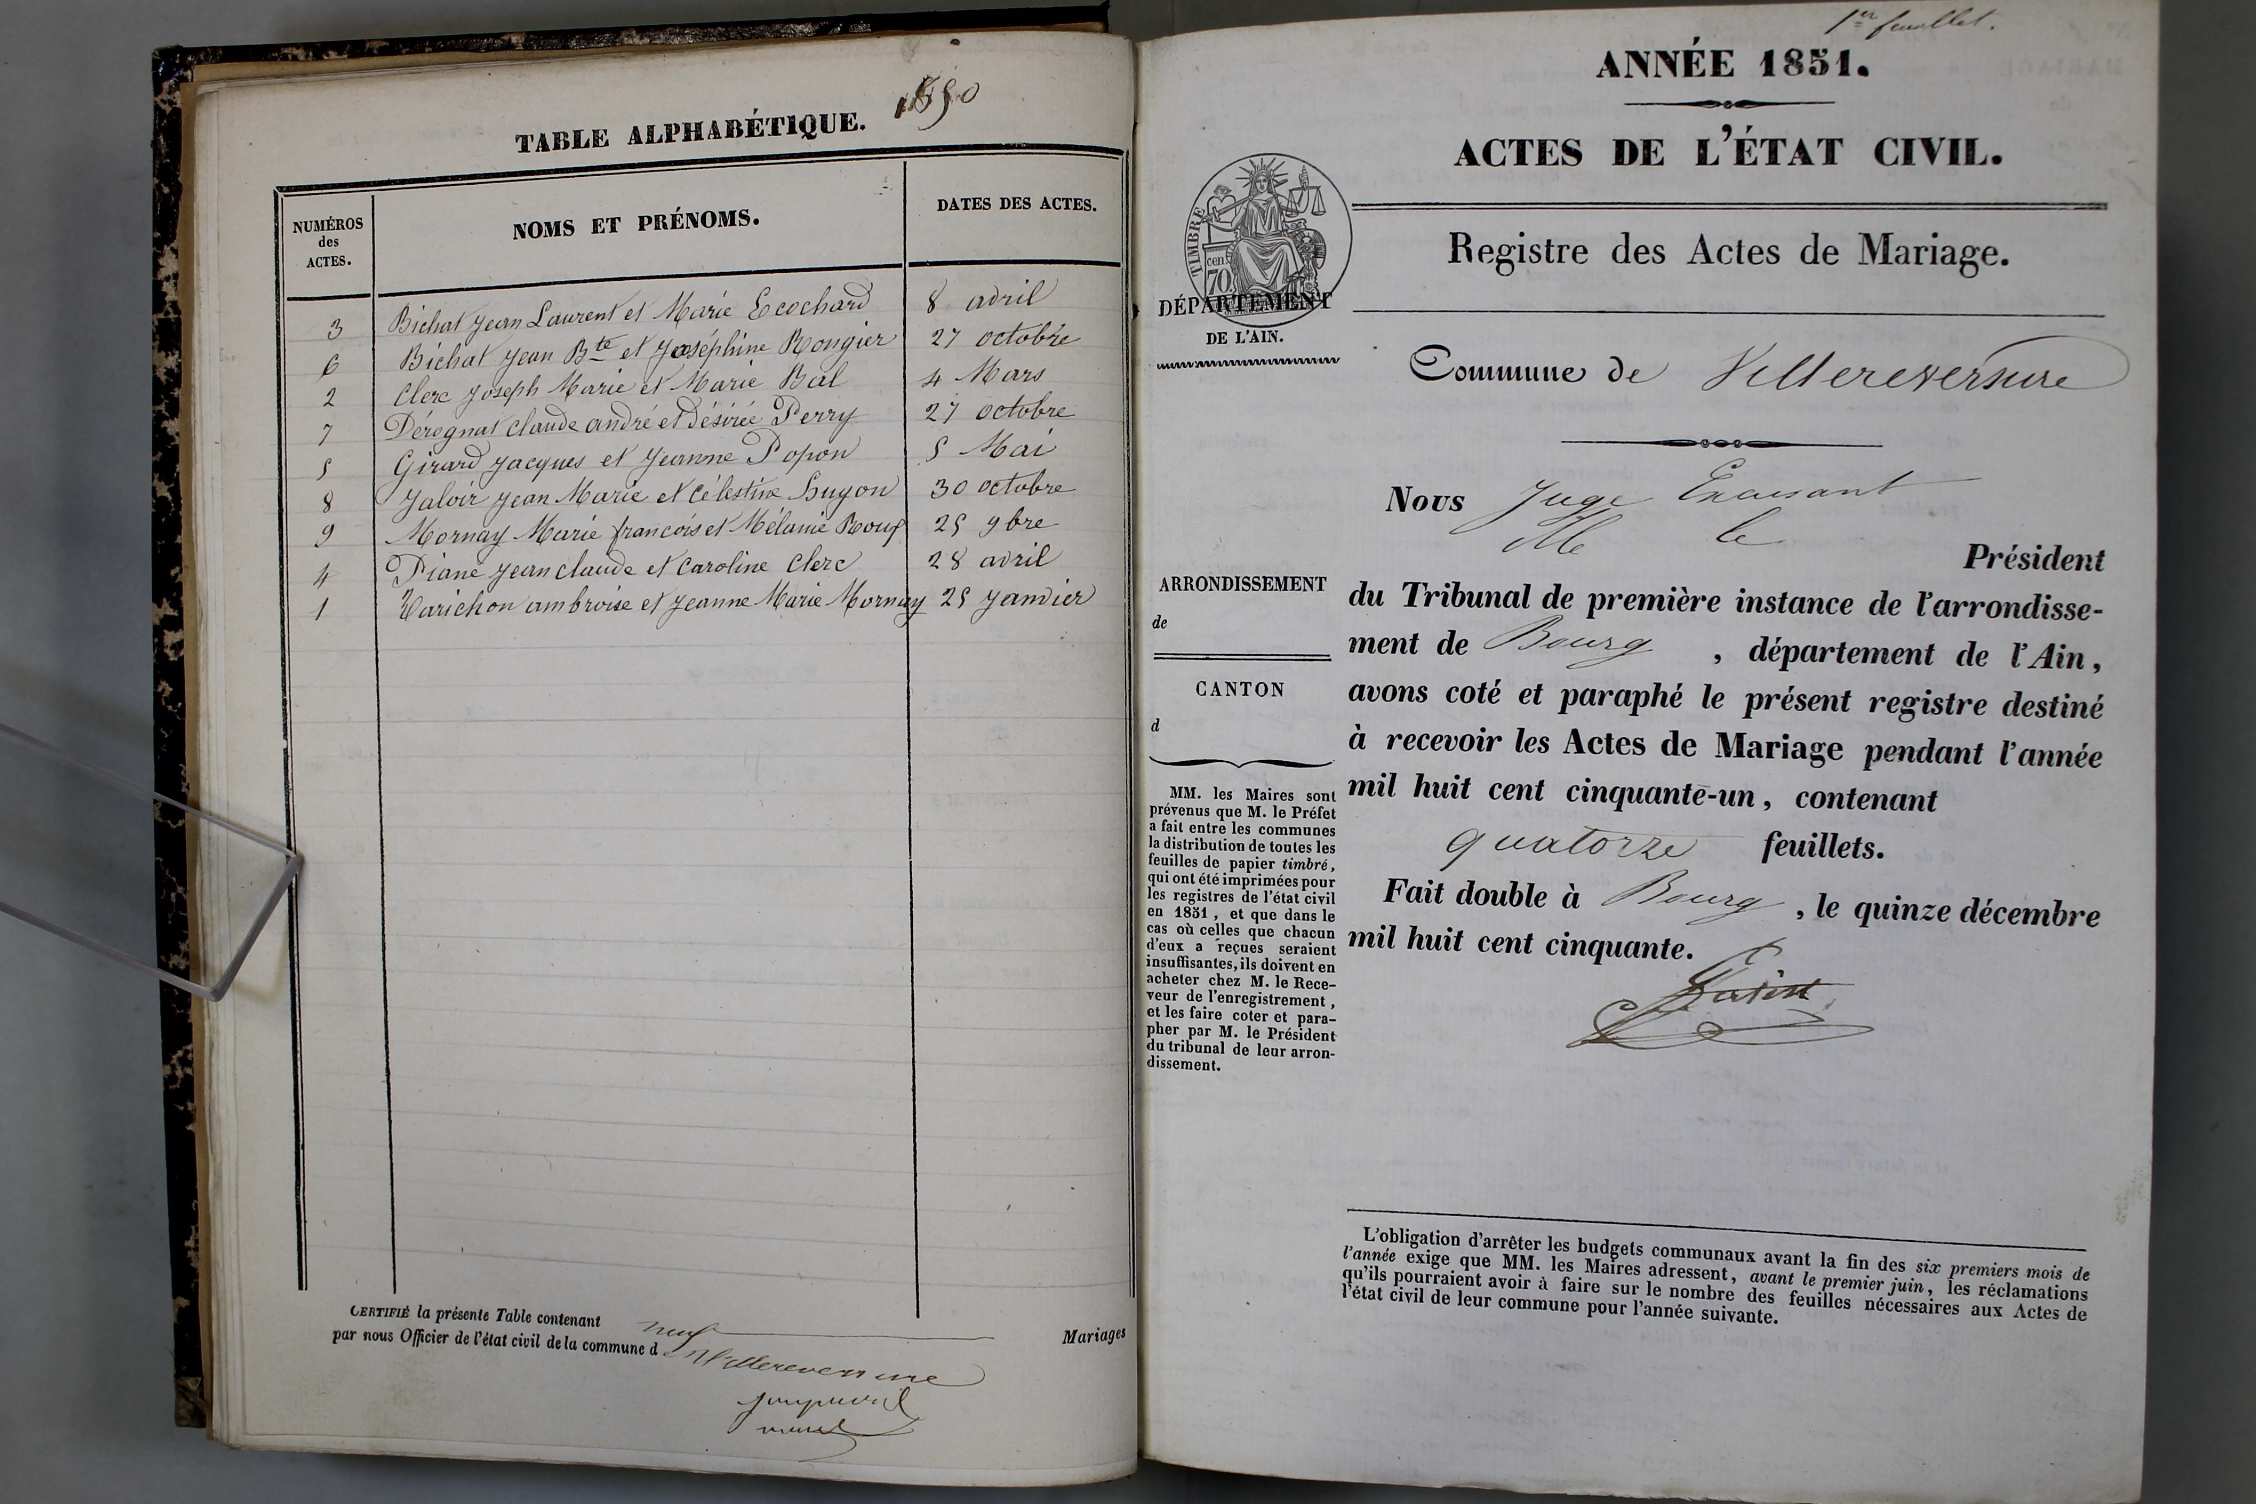 1850
TABLE ALPHABÉTIQUE.
NUMÉROS des ACTES.
NOMS ET PRÉNOMS.
DATES DES ACTES.
3 Bichat Jean Laurent et Marie Ecochard 8 avril
6 Bichat Jean Bte et Joséphine Rongier 27 octobre
2 Clerc Joseph Marie et Marie Bal 4 Mars
7 Dérognat Claude andré et Désirée Perry 27 octobre
5 Girard Jacques et Jeanne Popon 5 Mai
8 Jaloir Jean Marie et Célestine Hugon 30 octobre
9 Mornay Marie françois et Mélanie Roux 25 9bre
4 Piane Jean claude et Caroline Clerc 28 avril
1 Varichon ambroise et Jeanne Marie Mornay 25 Janvier
CERTIFIÉ la présente Table contenant neuf Mariages
par nous Officier de l'état civil de la commune d Villereversure
1er feuillet.
ANNÉE 1851.
ACTES DE L'ÉTAT CIVIL.
Registre des Actes de Mariage.
TIMBRE
cen.
70.
DÉPARTEMENT
DE L'AIN.
Commune de Villereversure
Nous Juge
le
Président
du Tribunal de première instance de l'arrondisse-
ment de Bourg , département de l'Ain,
avons coté et paraphé le présent registre destiné
à recevoir les Actes de Mariage pendant l'année
mil huit cent cinquante-un, contenant
quatorze feuillets.
Fait double à Bourg , le quinze décembre
mil huit cent cinquante.
ARRONDISSEMENT
de
CANTON
d
MM. les Maires sont
prévenus que M. le Préfet
a fait entre les communes
la distribution de toutes les
feuilles de papier timbré,
qui ont été imprimées pour
les registres de l'état civil
en 1851, et que dans le
cas où celles que chacun
d'eux a reçues seraient
insuffisantes, ils doivent en
acheter chez M. le Rece-
veur de l'enregistrement,
et les faire coter et para-
pher par M. le Président
du tribunal de leur arron-
dissement.
L'obligation d'arrêter les budgets communaux avant la fin des six premiers mois de
l'année exige que MM. les Maires adressent, avant le premier juin, les réclamations
qu'ils pourraient avoir à faire sur le nombre des feuilles nécessaires aux Actes de
l'état civil de leur commune pour l'année suivante.